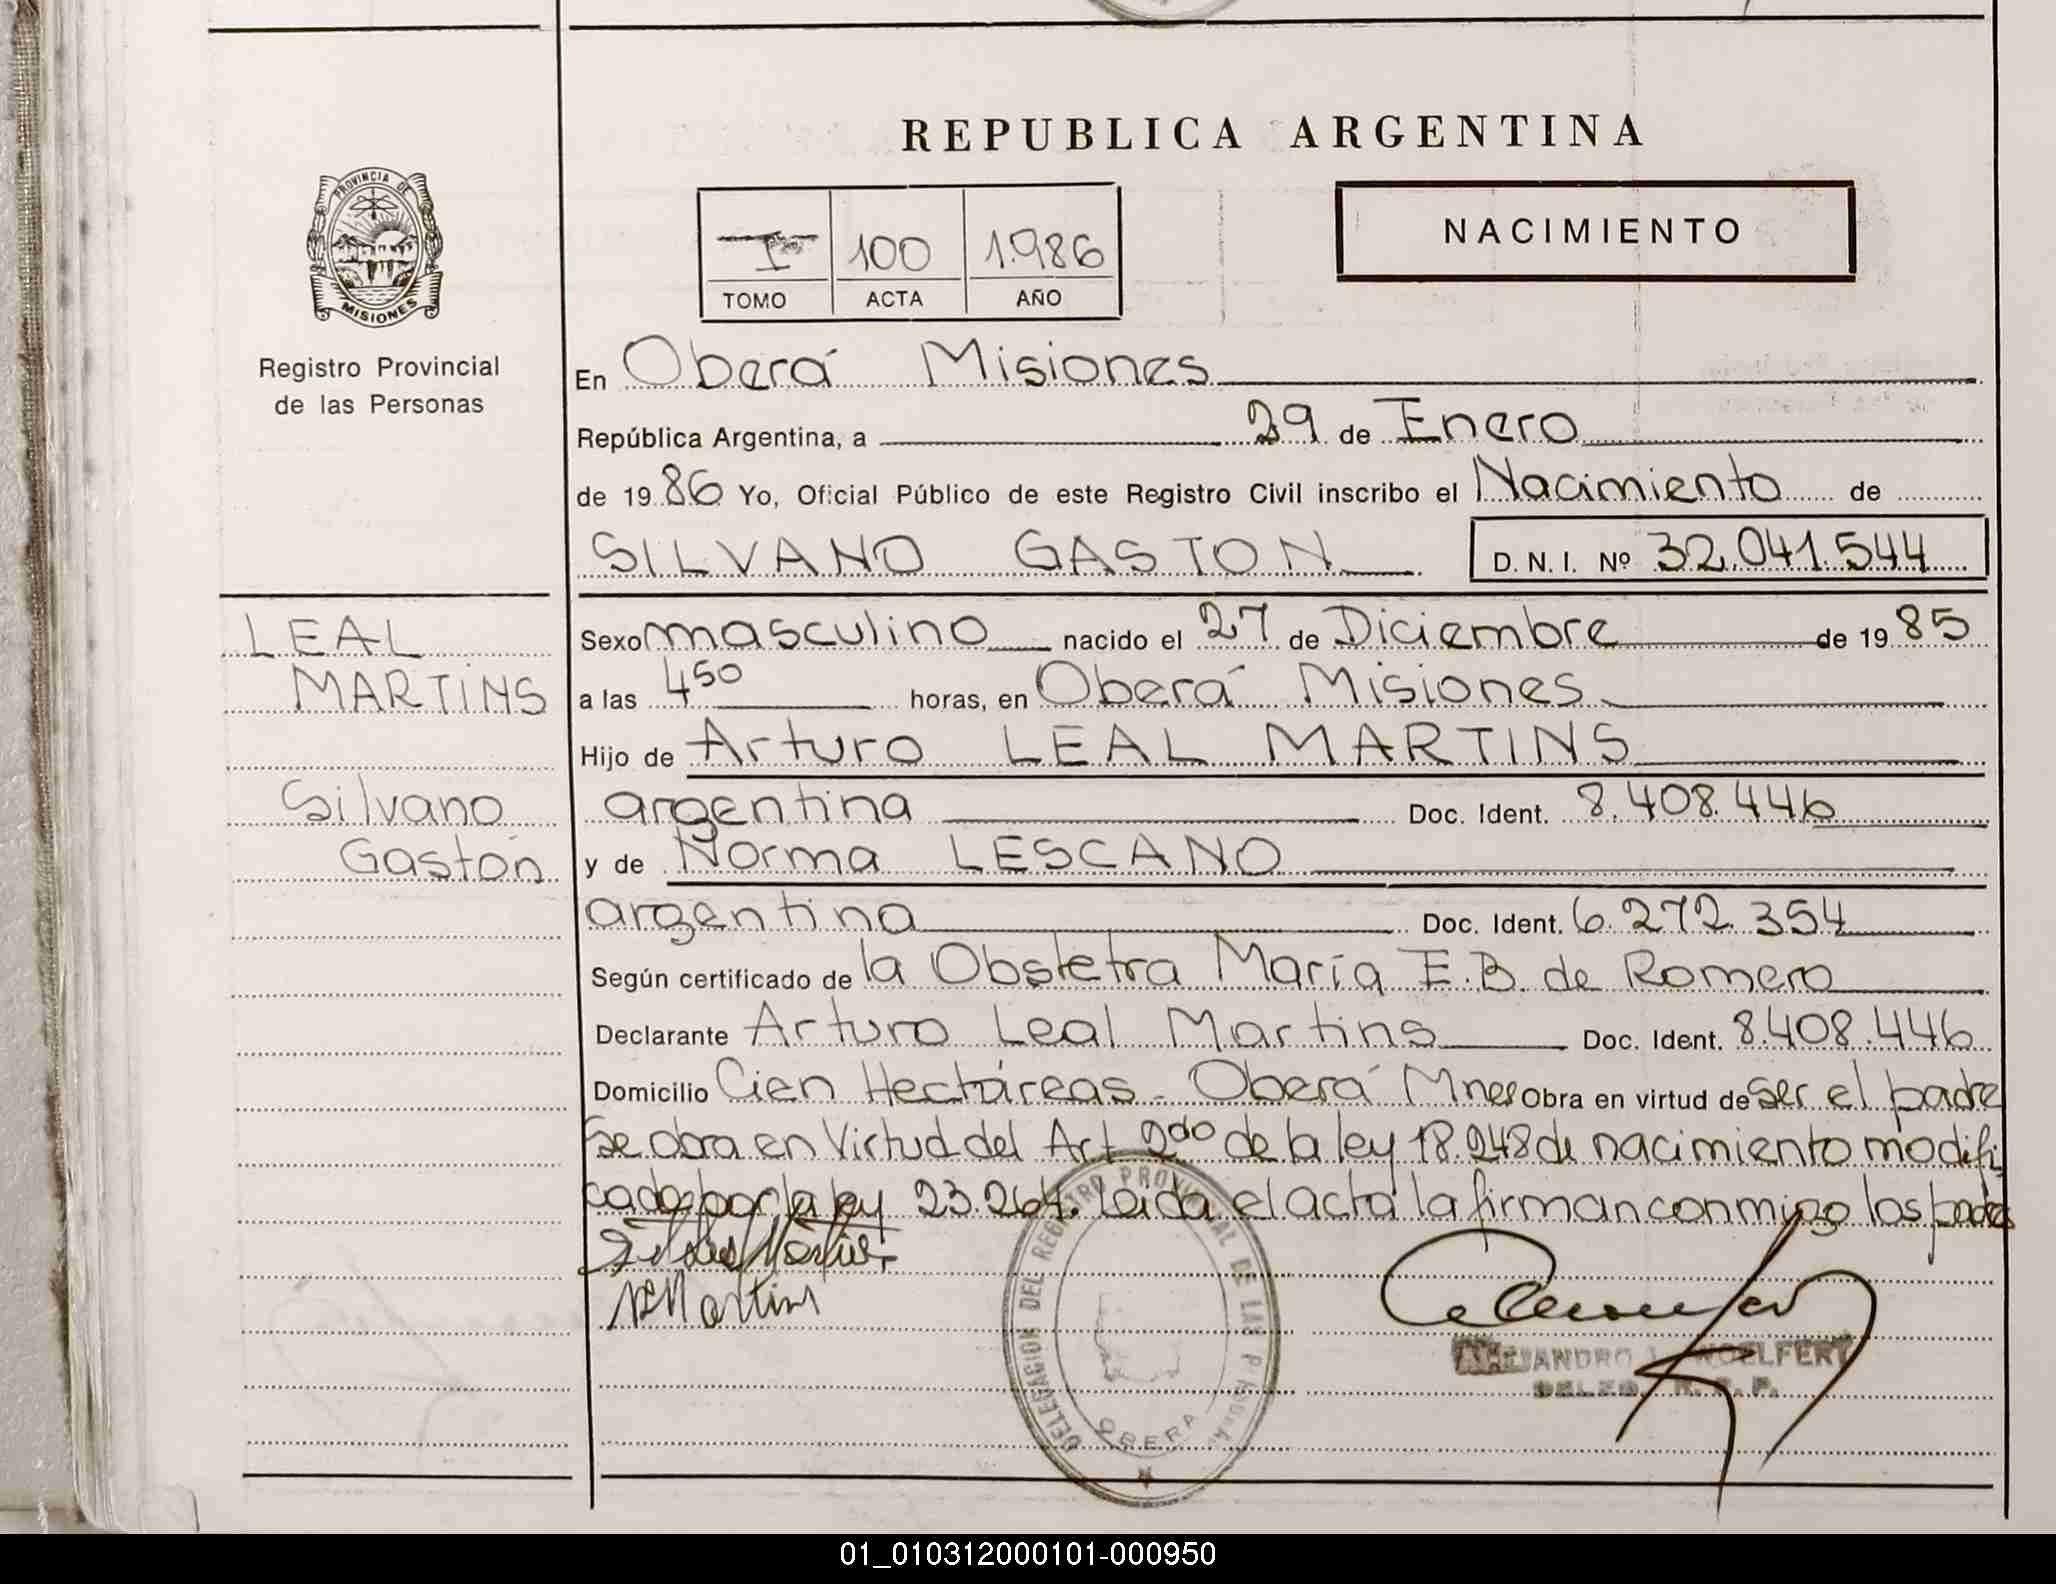 REPUBLICA ARGENTINA
PROVINCIA DE
MISIONES
Registro Provincial
de las Personas
I 100 1.986
TOMO ACTA AÑO
NACIMIENTO
En Oberá Misiones
República Argentina, a 29 de Enero
de 1986 Yo, Oficial Público de este Registro Civil inscribo el Nacimiento de
SILVANO GASTON D. N. I. Nº 32.041.544
LEAL
MARTINS
Silvano
Gastón
Sexo masculino nacido el 27 de Diciembre de 1985
a las 4 50 horas, en Oberá Misiones
Hijo de Arturo LEAL MARTINS
argentina Doc. Ident. 8.408.446
y de Norma LESCANO
argentina Doc. Ident. 6.272.354
Según certificado de la Obstetra María E.B. de Romero
Declarante Arturo Leal Martins Doc. Ident. 8.408.446
Domicilio Cien Hectáreas - Oberá Mnes Obra en virtud de ser el padre
Se obra en Virtud del Art 2do de la ley 18.248 de nacimiento modifi
cado por la ley 23.264. Leida el acta la firman conmigo los padres
Martins
DELEGACION DEL REGISTRO PROVINCIAL DE LAS PERSONAS
OBERA
ALEJANDRO WOELFERT
DELEG. R. P. P.
01_010312000101-000950